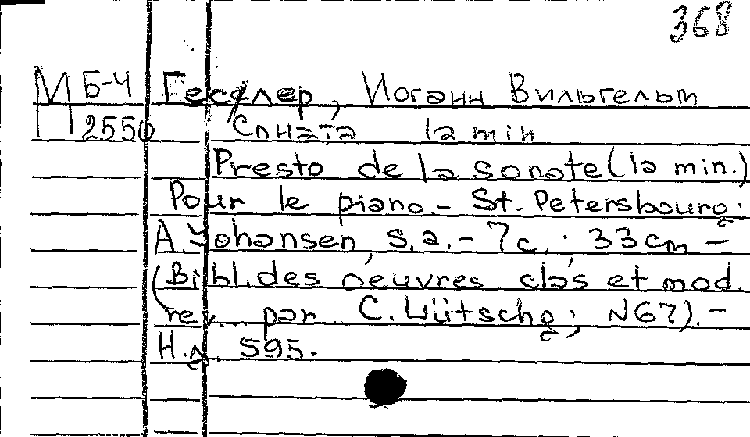 368
М Б-4 Гесслер, Иоганн Вильгельм
П 2550 Соната la min
Presto de la sonate (la min.)
Pour le piano. - St. Petersbourg:
A. Johansen, s.a. - 7с.; 33cm -
(Bibl. des oeuvres clas et mod.
rev. par C. Lütschg; N67). -
Н.д. 595.